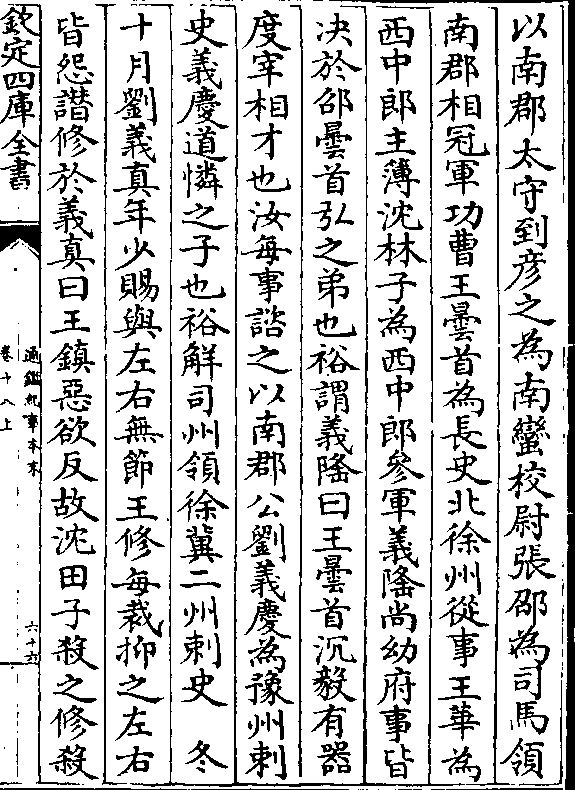 以南郡太守到彦之為南蠻校尉張邵為司馬領
南郡相冠軍功曹王曇首為長史北徐州從事王華為
西中郎主簿沈林子為西中郎參軍義隆尚幼府事皆
决於邵曇首弘之弟也裕謂義隆曰王曇首沉毅有器
度宰相才也汝每事諮之以南郡公劉義慶為豫州刺
史義慶道憐之子也裕解司州領徐冀二州刺史　冬
十月劉義真年少賜與左右無節王修每裁抑之左右
皆怨譖修於義真曰王鎮惡欲反故沈田子殺之修殺
欽定四庫全書
通鑑紀事本末
卷十八上
六十六